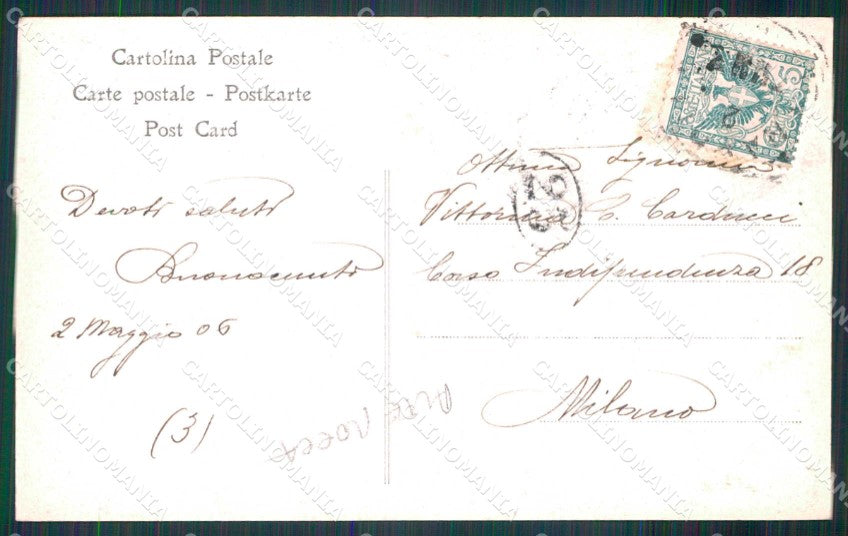 Cartolina Postale
Carte postale - Postkarte
Post Card
Devoti saluti
Buonocunto
2 Maggio 06
(3)
Signorina
Vittorina C. Carducci
Corso Indipendenza 18
Milano
5
CARTOLINOMANIA